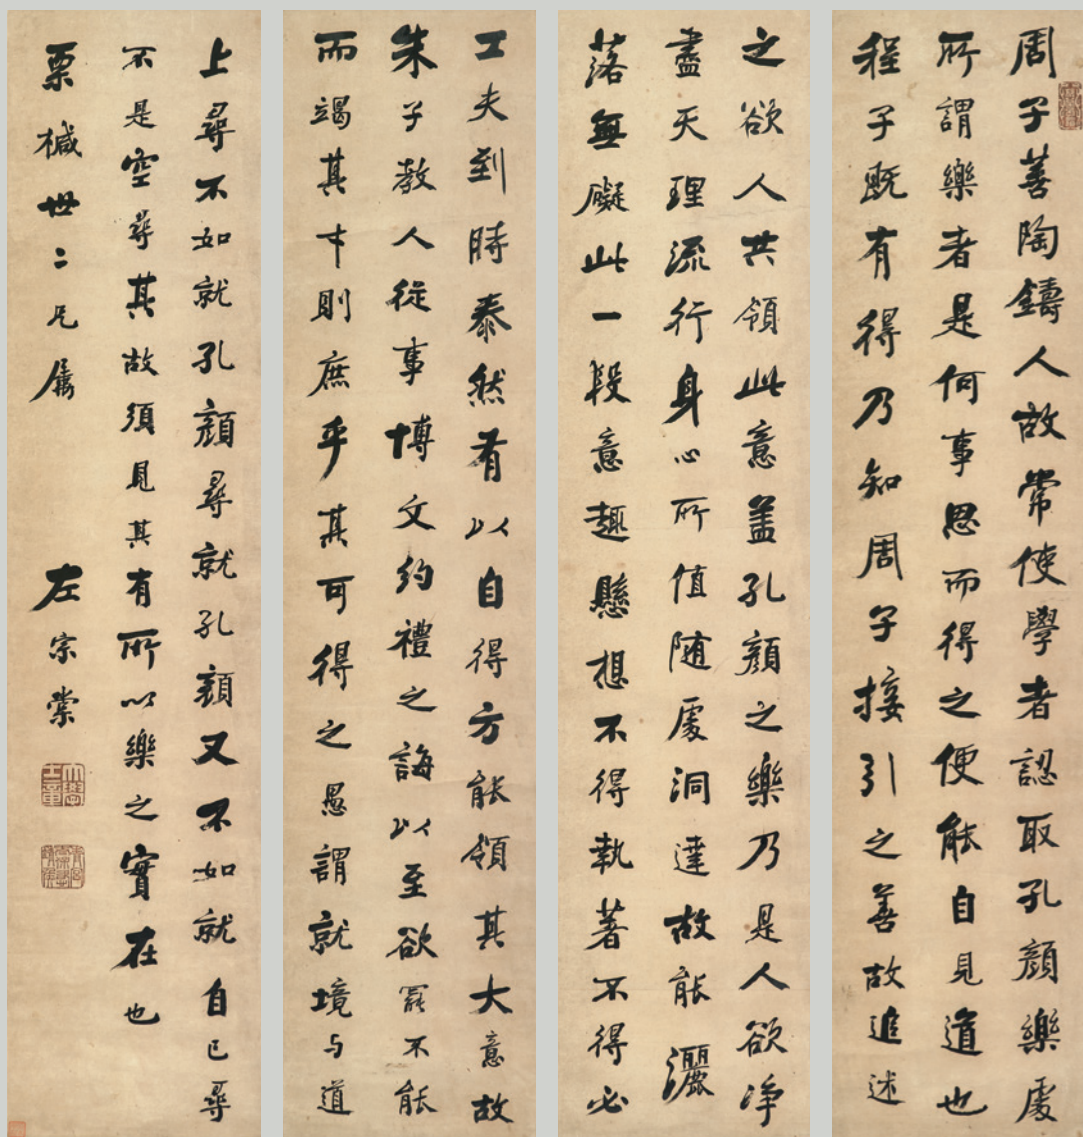 周子善陶鑄人故常使學者認取孔顏樂處
所謂樂者是何事思而得之便能自見道也
程子既有得乃知周子接引之善故追述
之欲人共領此意蓋孔顏之樂乃是人欲净
盡天理流行身心所值随處洞達故能灑
落無礙此一段意趣懸想不得執著不得必
工夫到時泰然有以自得方能領其大意故
朱子教人從事博文約禮之誨以至欲罷不能
而竭其才則庶乎其可得之愚謂就境与道
上尋不如就孔顏尋就孔顏又不如就自己尋
不是空尋其故須見其有所以樂之實在也
栗棫世二兄屬
左宗棠